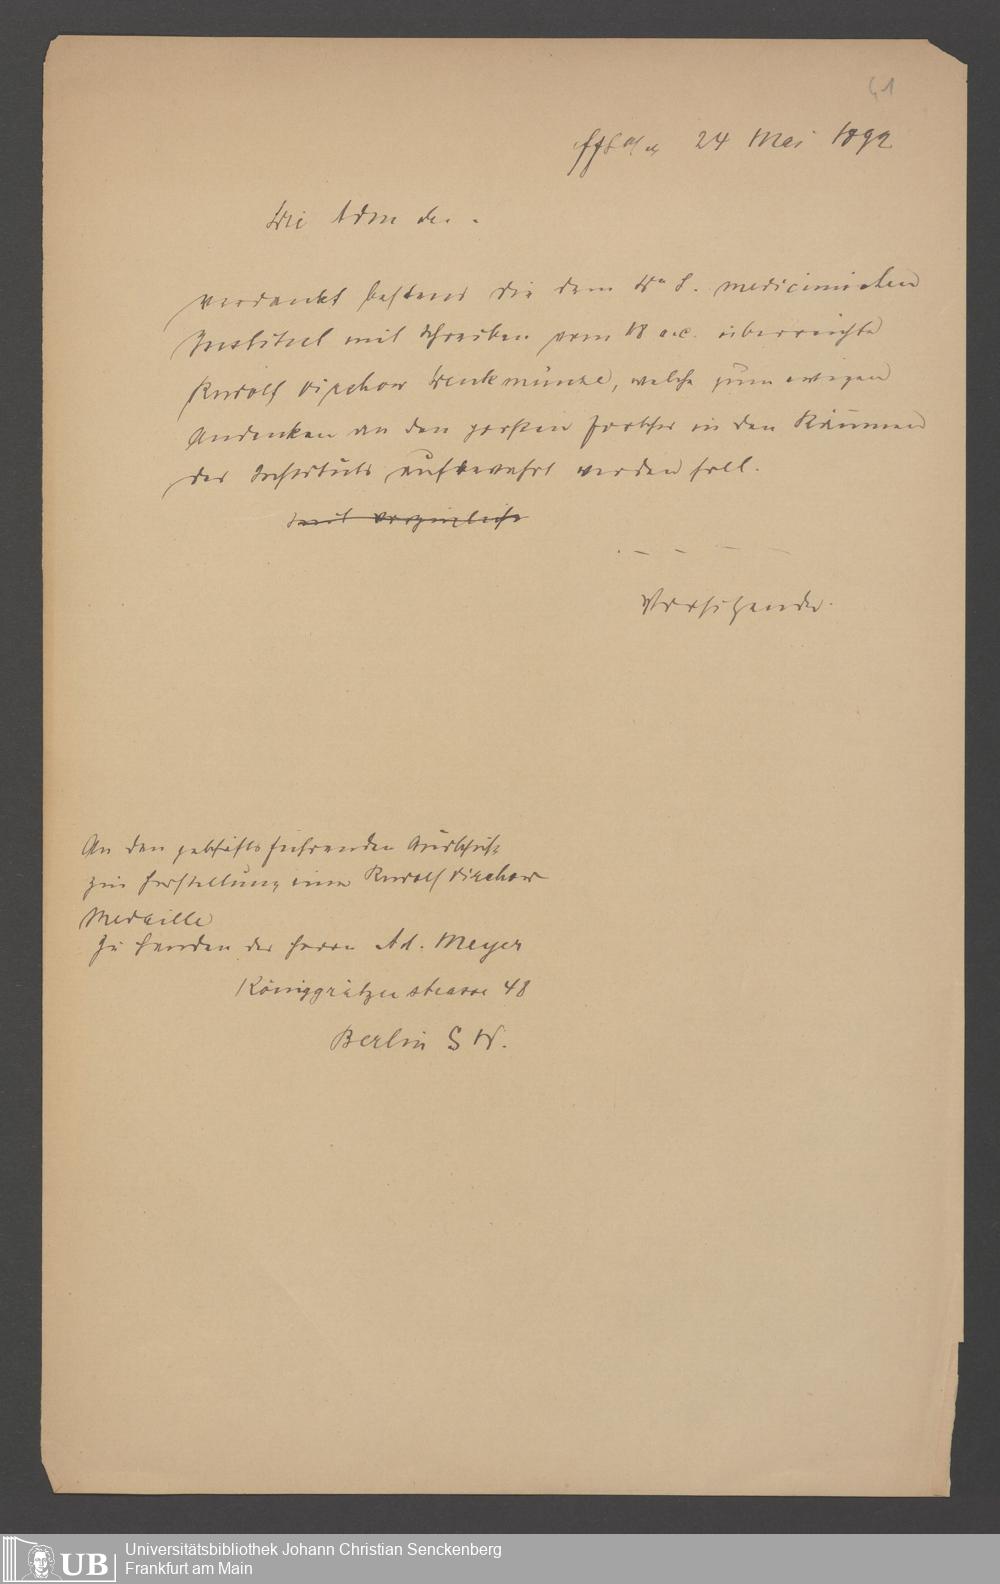 41
Fft a/M 24 Mai 1892
Die Adm der
verdankt bestens die dem Dr. S. medicinischen
Institut mit Schreiben vom 18 a.c. überreichte
Rudolf Virchow Denkmünze, welche zum ewigen
Andenken an den großen Forscher in den Räumen
des Instituts aufbewahrt werden soll.
mit vorzüglicher
Vorsitzender.
An den geschäftsführenden Ausschuß
zur Herstellung einer Rudolf Virchow
Medaille
zu Handen des Herrn Ad. Meyer
Königgrätzer strasse 48
Berlin S W.
UB
Universitätsbibliothek Johann Christian Senckenberg
Frankfurt am Main